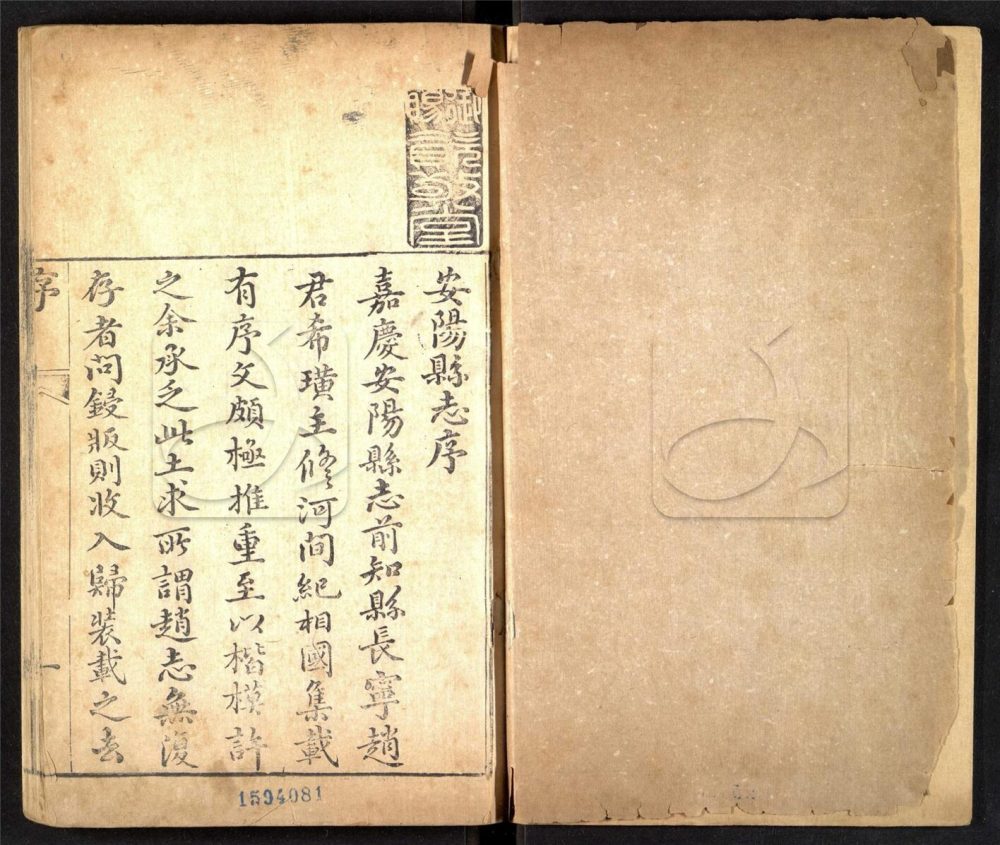 安陽縣志序
嘉慶安陽縣志前知縣長寧趙
君希璜主修河間紀相國集載
有序文頗極推重至以楷模許
之余承乏此土求所謂趙志無復
存者問鋟版則收入歸裝載之去
序
一
御賜
堂
1594081